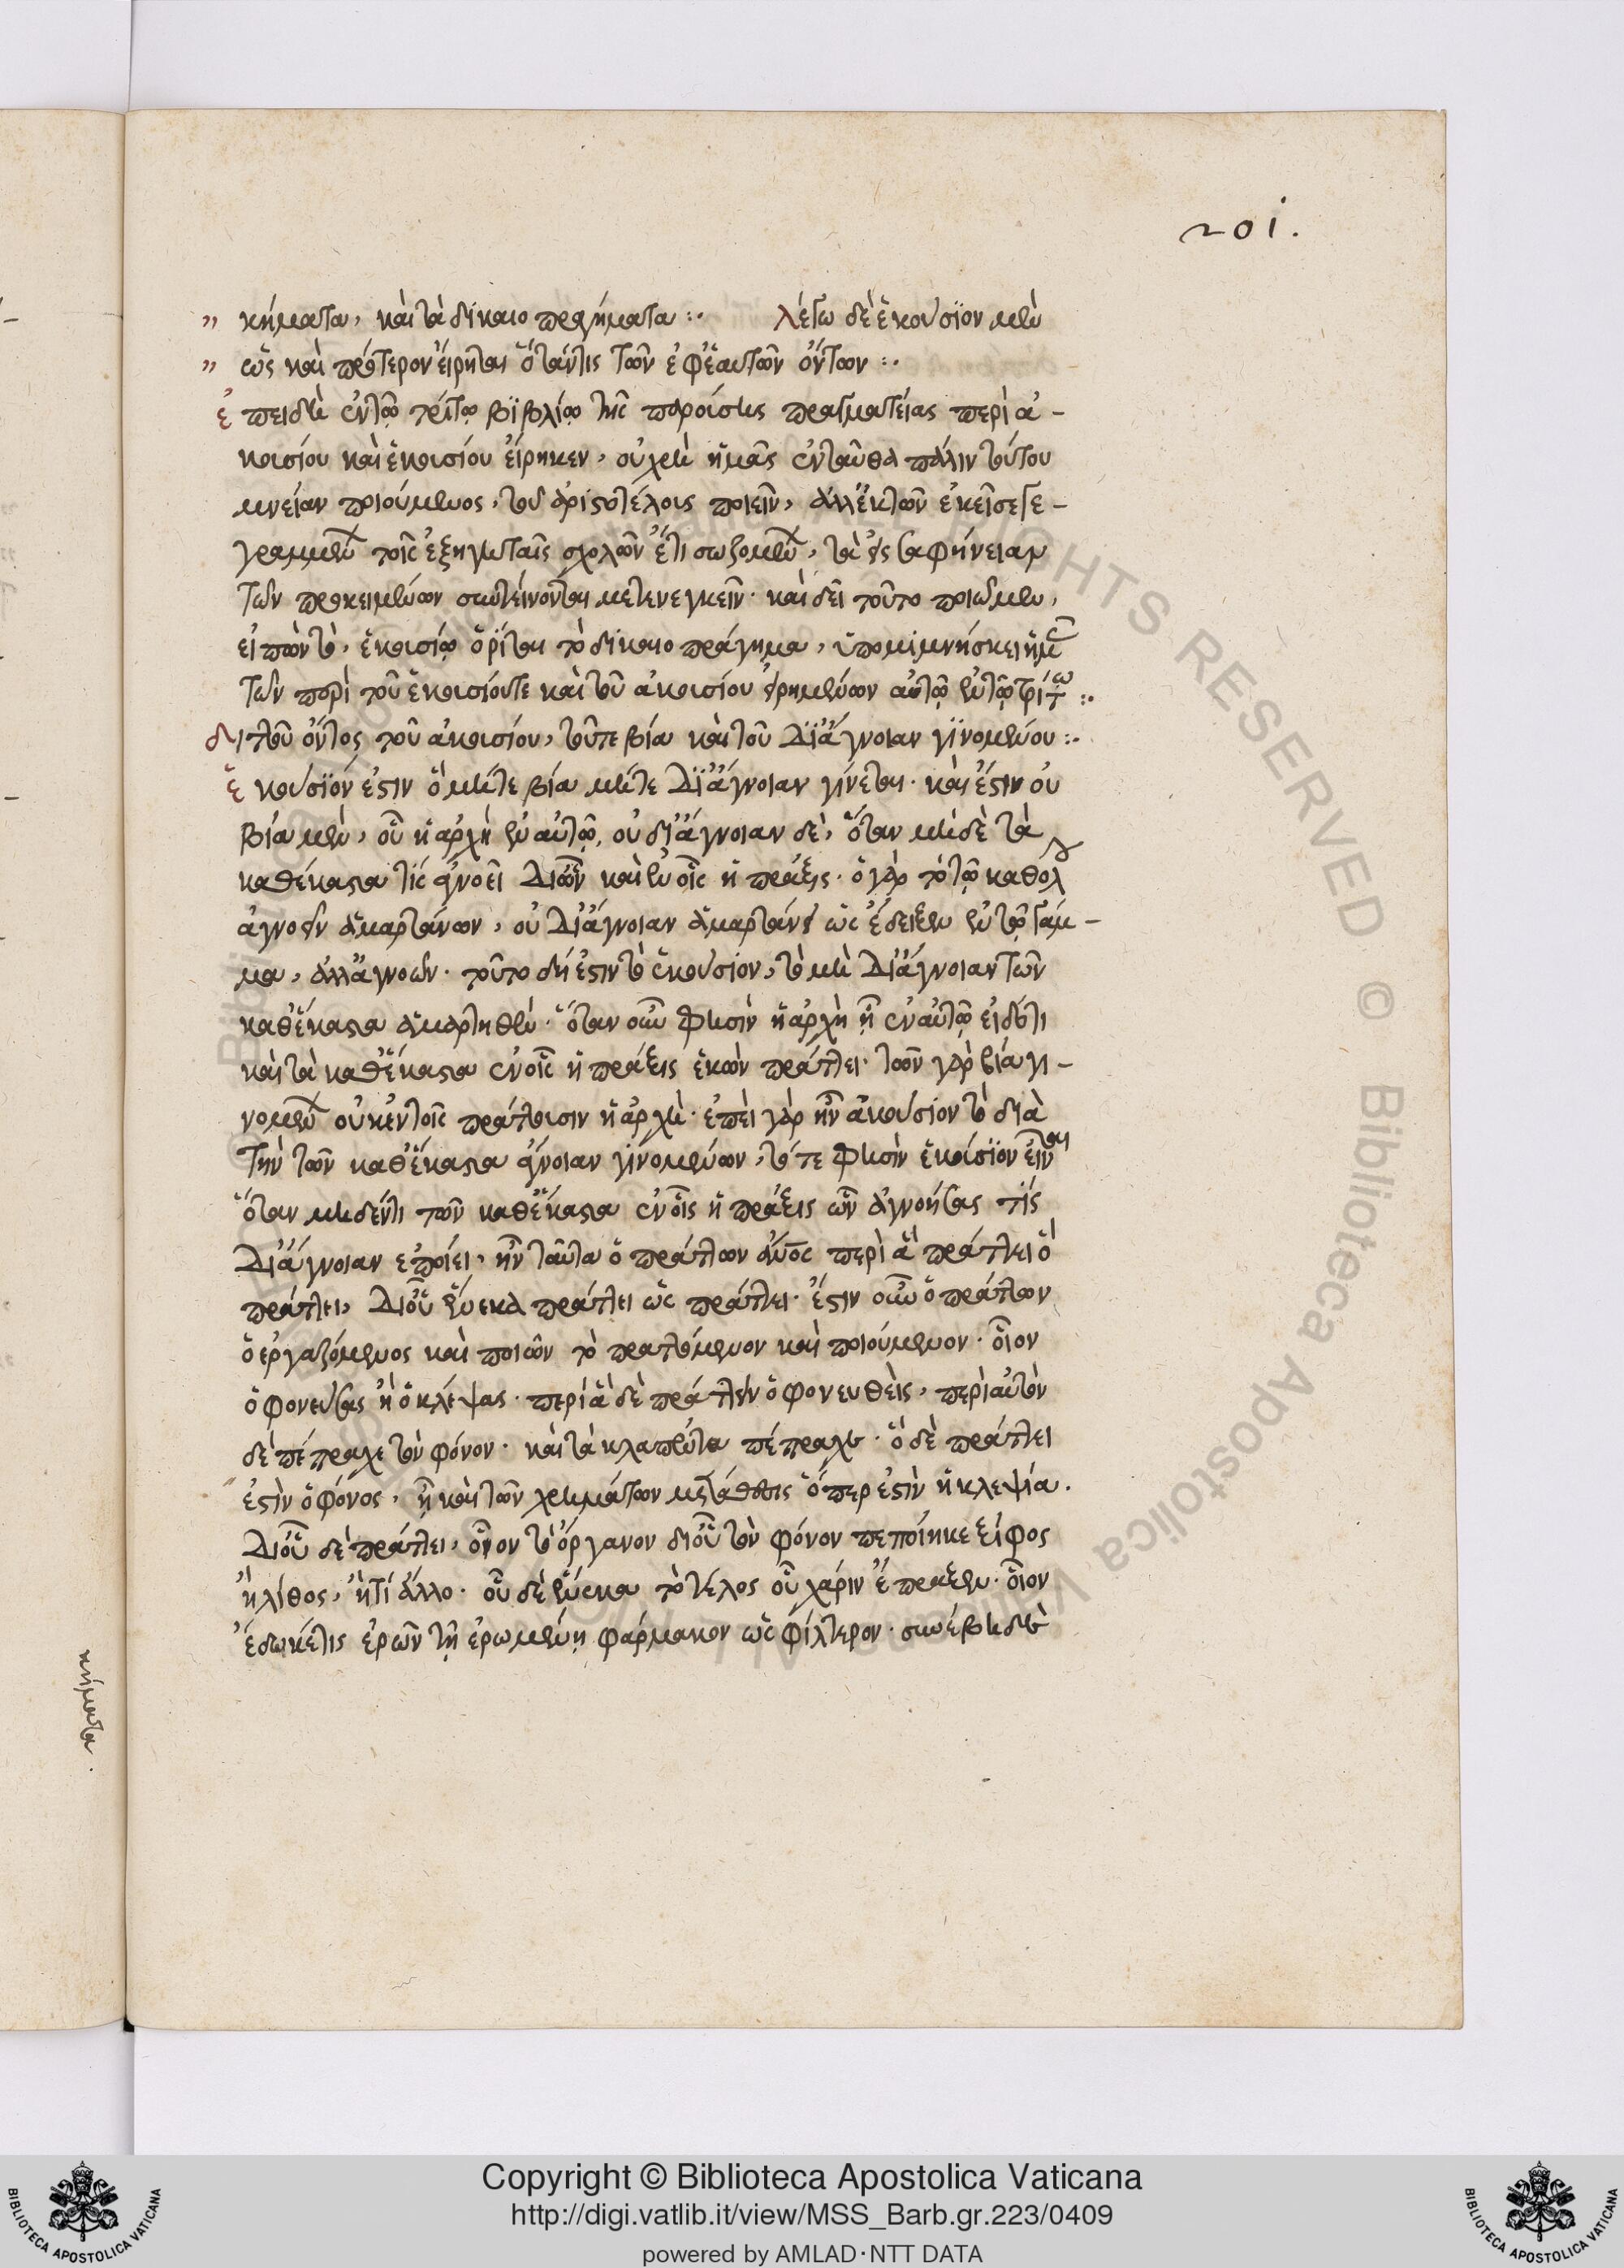 201.
κήματα, καὶ τὰ δίκαιο πραγήματα :. λέγω δὲ ἑκούσϊον μὲν
ὡς καὶ πρότερον εἴρηται ὅ τάν τις τῶν ἐφ' ἑαυτῶν ὄντων :.
ἐπειδὴ ἐν τῷ τρίτῳ βϊβλίῳ τῆς παρούσης πραγματείας περὶ ἀ-
κουσίου καὶ ἑκουσίου εἴρηκεν, οὐ χρὴ ἡμᾶς ἐνταῦθα πάλιν τούτου
μνείαν ποιούμενος, τοῦ ἀριστοτέλους ποιεῖν, ἀλλ' ἐκ τῶν ἐκεῖσε γε-
γραμμένων τοῖς ἐξηγηταῖς σχολῶν ἔτι σωζομένων, τὰ εἰς σαφήνειαν
τῶν προκειμένων συντείνονται μετενεγκεῖν. καὶ δεῖ τοῦτο ποιῶμεν,
εἰπὼν τὸ, ἑκουσίῳ ὅρίται τὸ δίκαιο πράγημα, ὑπομιμνήσκει ἡμᾶς
τῶν περὶ τοῦ ἑκουσίου τε καὶ τοῦ ἀκουσίου εἰρημένων αὐτῷ ἐν τῷ τρίτῳ :.
διττοῦ ὄντος τοῦ ἀκουσίου, τοῦ τε βία καὶ τοῦ δϊ' ἄγνοιαν γϊνομένου :.
ἑκούσϊόν ἐστιν ὃ μήτε βία μήτε δϊ' ἄγνοιαν γίνεται. καὶ ἔστιν οὐ
βία μὲν, οὗ ἡ ἀρχὴ ἐν αὐτῷ, οὐ δι' ἄγνοιαν δὲ, ὅταν μὴ δὲ τὰ
καθέκαστα τὶς ἀγνοεῖ δι' ὧν καὶ ἐν οἷς ἡ πράξις. ὁ γὰρ τὸ τῷ καθολ
ἀγνοεῖν ἁμαρτάνων, οὐ δι' ἄγνοιαν ἁμαρτάνει ὡς ἔδειξεν ἐν τῷ γάμ-
μα, ἀλλ' ἀγνοῶν. τοῦτο δή ἐστιν τὸ ἑκούσιον, τὸ μὴ δι' ἄγνοιαν τῶν
καθ' ἕκαστα ἁμαρτηθέν. ὅταν οὖν φησὶν ἡ ἀρχὴ ᾖ ἐν αὐτῷ εἰδότι
καὶ τὰ καθ' ἕκαστα ἐν οἷς ἡ πράξις ἑκὼν πράττει. τῶν γὰρ βία γι-
νομένων οὐκ ἐν τοῖς πράττουσιν ἡ ἀρχή. ἐπεὶ γὰρ ἦν ἀκούσιον τὸ διὰ
τὴν τῶν καθ' ἕκαστα ἄγνοιαν γϊνομένων, τό τε φησὶν ἑκούσϊον εἶναι
ὅταν μηδέν τι τῶν καθ' ἕκαστα ἐν οἷς ἡ πράξις ὧν ἀγνοήσας τίς
δι' ἄγνοιαν ἐποίει, ἦν ταῦτα ὁ πράττων αὐτὸς περὶ ἃ πράττει ὃ
πράττει, δι' οὗ ἕνεκα πράττει ὡς πράττει. ἔστιν οὖν ὁ πράττων
ὁ ἐργαζόμενος καὶ ποιῶν τὸ πραττόμενον καὶ ποιούμενον. οἷον
ὁ φονεύσας ἢ ὁ κλέψας. περὶ ἃ δὲ πράττειν ὁ φονευθεὶς, περὶ αὐτὸν
δὲ πέπραχε τὸν φόνον. καὶ τὰ κλαπέντα πέπραχε. ὃ δὲ πράττει
ἐστὶν ὁ φόνος, ἢ καὶ τῶν χρημάτων μετάθεσις ὅπερ ἐστὶν ἡ κλεψία.
δι' οὗ δὲ πράττει, οἷον τὸ ὄργανον δι' οὗ τὸν φόνον πεποίηκε ξίφος
ἢ λίθος, ἤ τι ἄλλο. οὗ δὲ ἕνεκα τὸ τέλος οὗ χάριν ἔπραξεν. οἷον
ἔδωκέ τις ἐρῶν τῇ ἐρωμένῃ φάρμακον ὡς φίλτερον. συνέβη δὲ
κήματα.
Copyright © Biblioteca Apostolica Vaticana
http://digi.vatlib.it/view/MSS_Barb.gr.223/0409
powered by AMLAD·NTT DATA